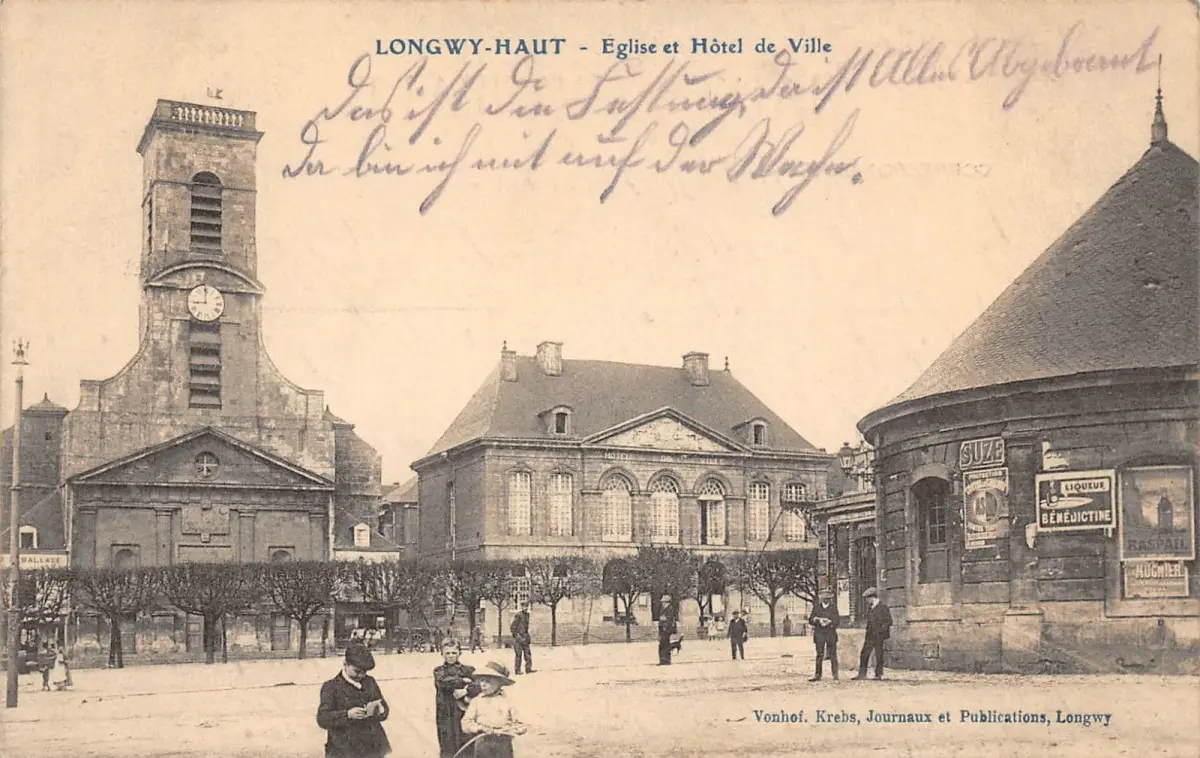 LONGWY-HAUT - Eglise et Hôtel de Ville
Das ist die Festung, da ist Alles Abgebrannt
da bin ich mit auf der Wache.
HOTEL DE VILLE
SUZE
LIQUEUR
BÉNÉDICTINE
RASPAIL
Vonhof. Krebs, Journaux et Publications, Longwy